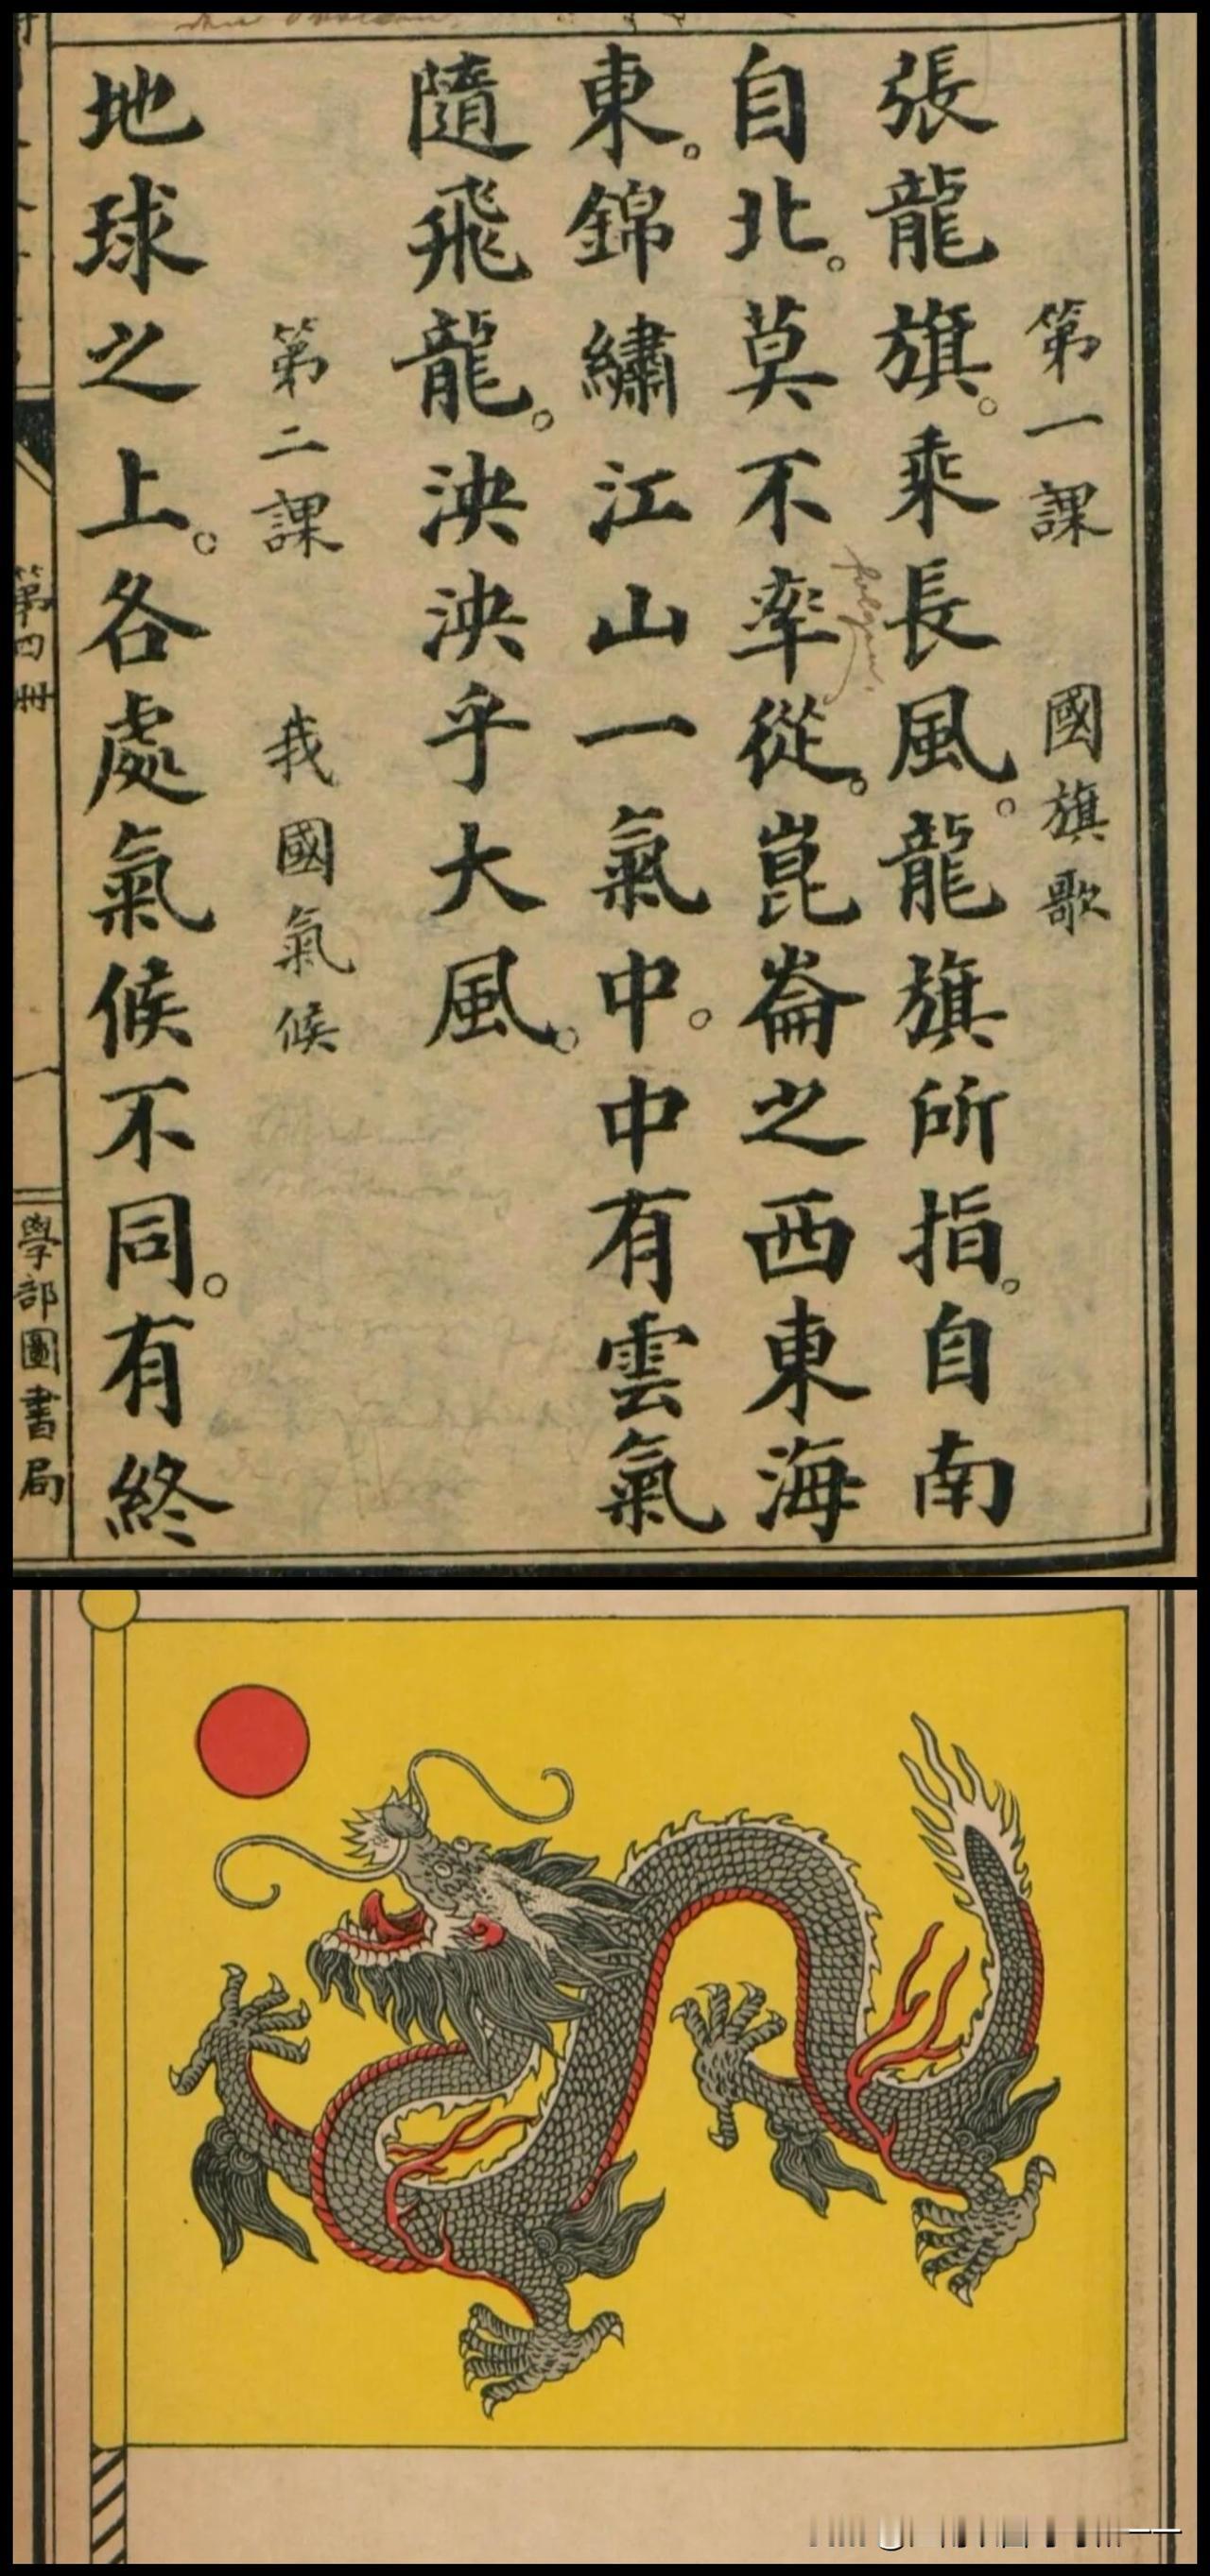 第一課　國旗歌
張龍旗。乘長風。龍旗所指。自南
自北。莫不率從。崑崙之西東海
東。錦繡江山一氣中。中有雲氣
隨飛龍。泱泱乎大風。
第二課　我國氣候
地球之上。各處氣候不同。有終
第四冊
一
學部圖書局